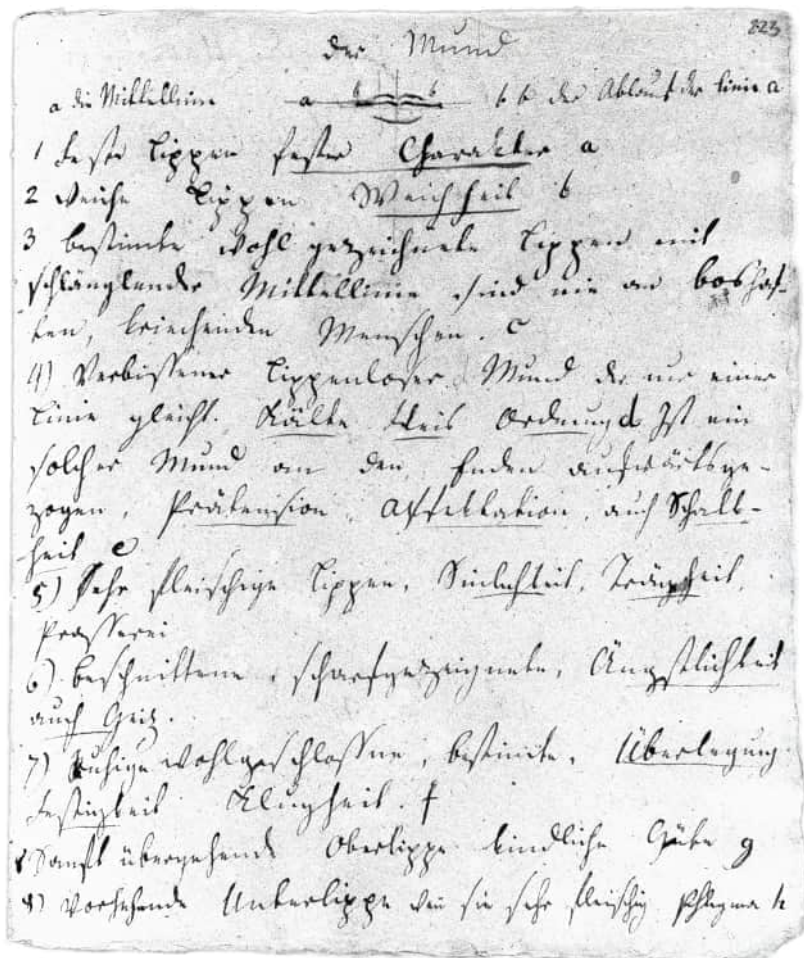 323
der Mund
a die Mittellinie a b b b b der Ablauf der linie a
1 feste Lippen fester Charakter a
2 weiche Lippen Weichheit b
3 bestimte wohl gezeichnete Lippen mit
schlänglender Mittellinie sind nie an boshaf-
ten, kriechenden Menschen. c
4) Verbissener Lippenloser Mund der nur einer
Linie gleicht. Kälte Fleis Ordnung d Ist ein
solcher Mund an den Enden aufwärtsge-
zogen, Prätension, Affektation, auch Schalk-
heit e
5) Sehr fleischige Lippen, Sinlichkeit, Trägheit,
Prasserei
6) beschnittene, scharfgezeignete, Ängstlichkeit
auch Geitz.
7) Ruhige wohlgeschlossne, bestimte, Überlegung
Festigkeit Klugheit. f
8 Sanft übergehende Oberlippe kindliche Güte g
9) Vorstehende Unterlippe wen sie sehr fleischig Phlegma h